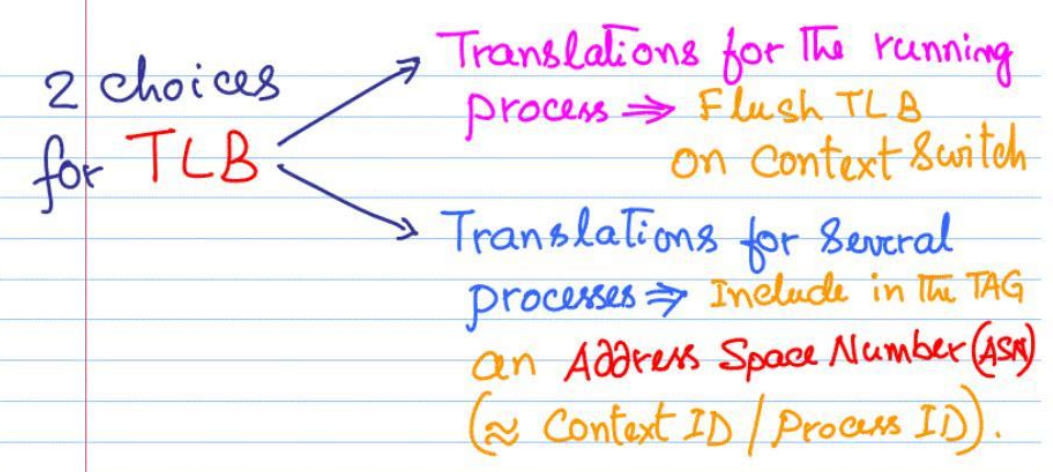 2 choices
for TLB
Translations for the running
process ⇒ Flush TLB
on Context Switch
Translations for Several
processes ⇒ Include in the TAG
an Address Space Number (ASN)
(≈ Context ID / Process ID).